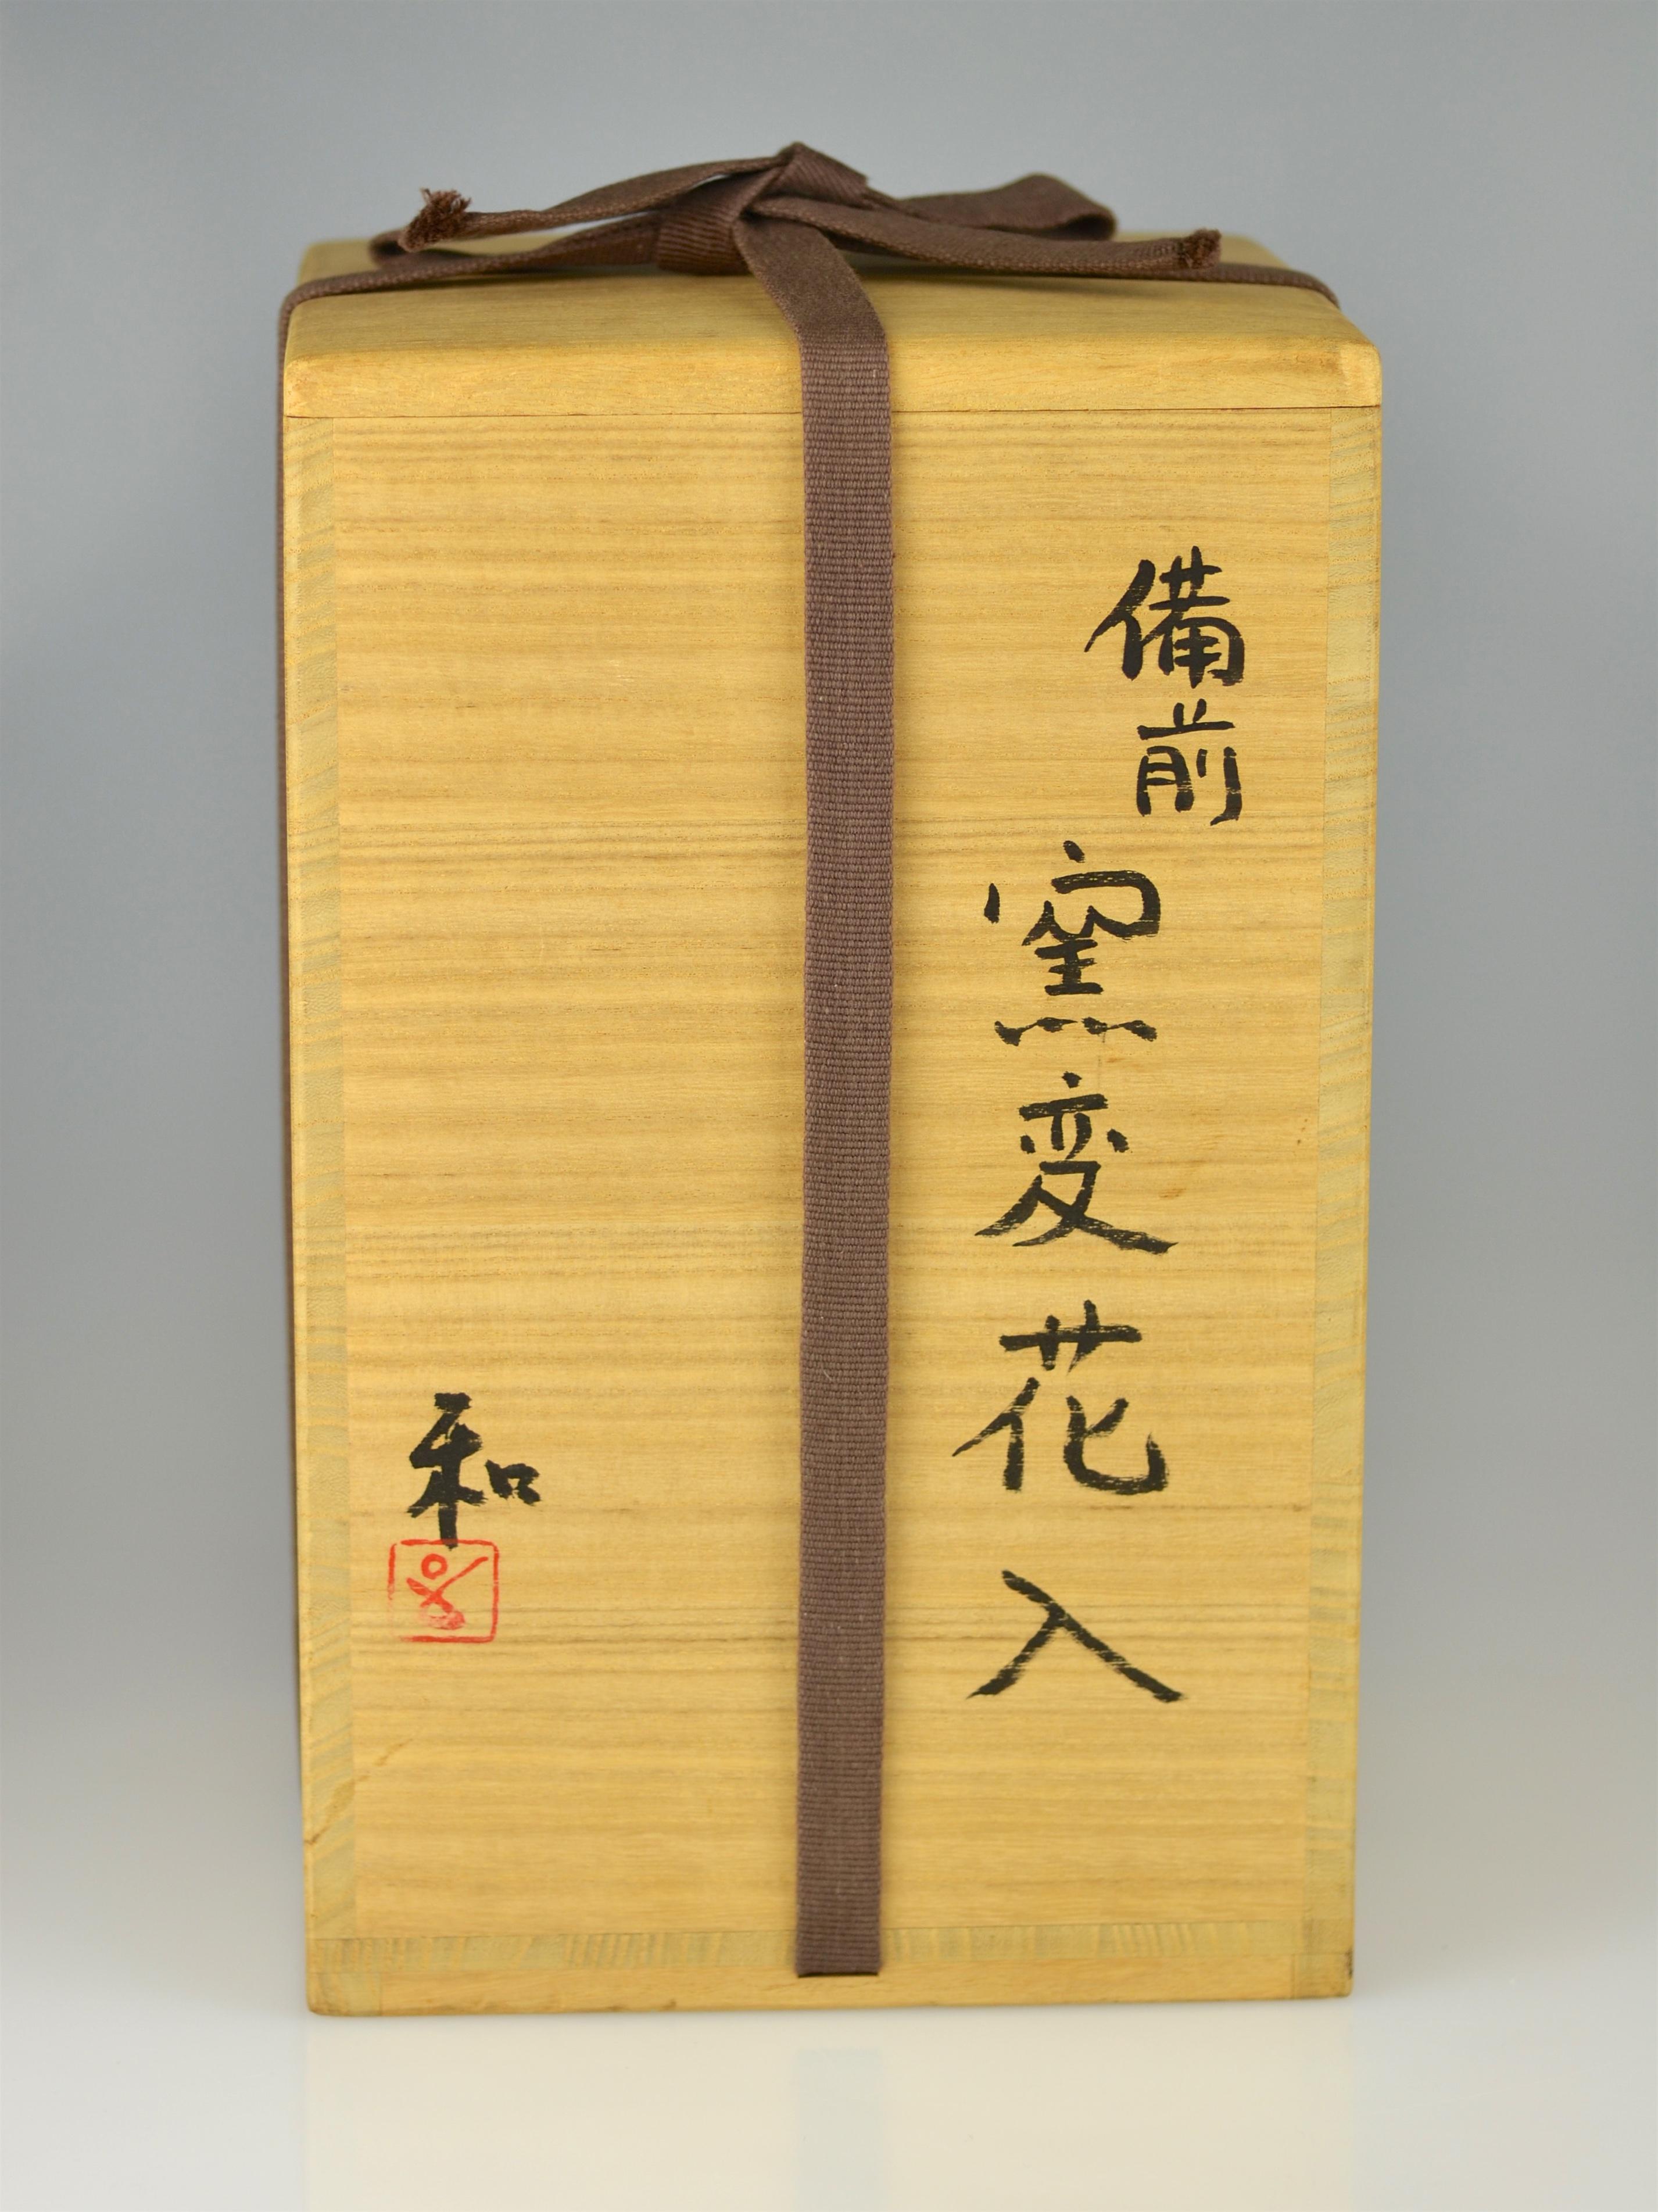 備前
窯変花入
和